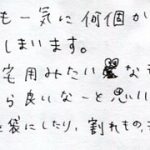 も一気に何個か
しまいます。
宅用みたいな
ら良いなーと思い
袋にしたり、割れもの、